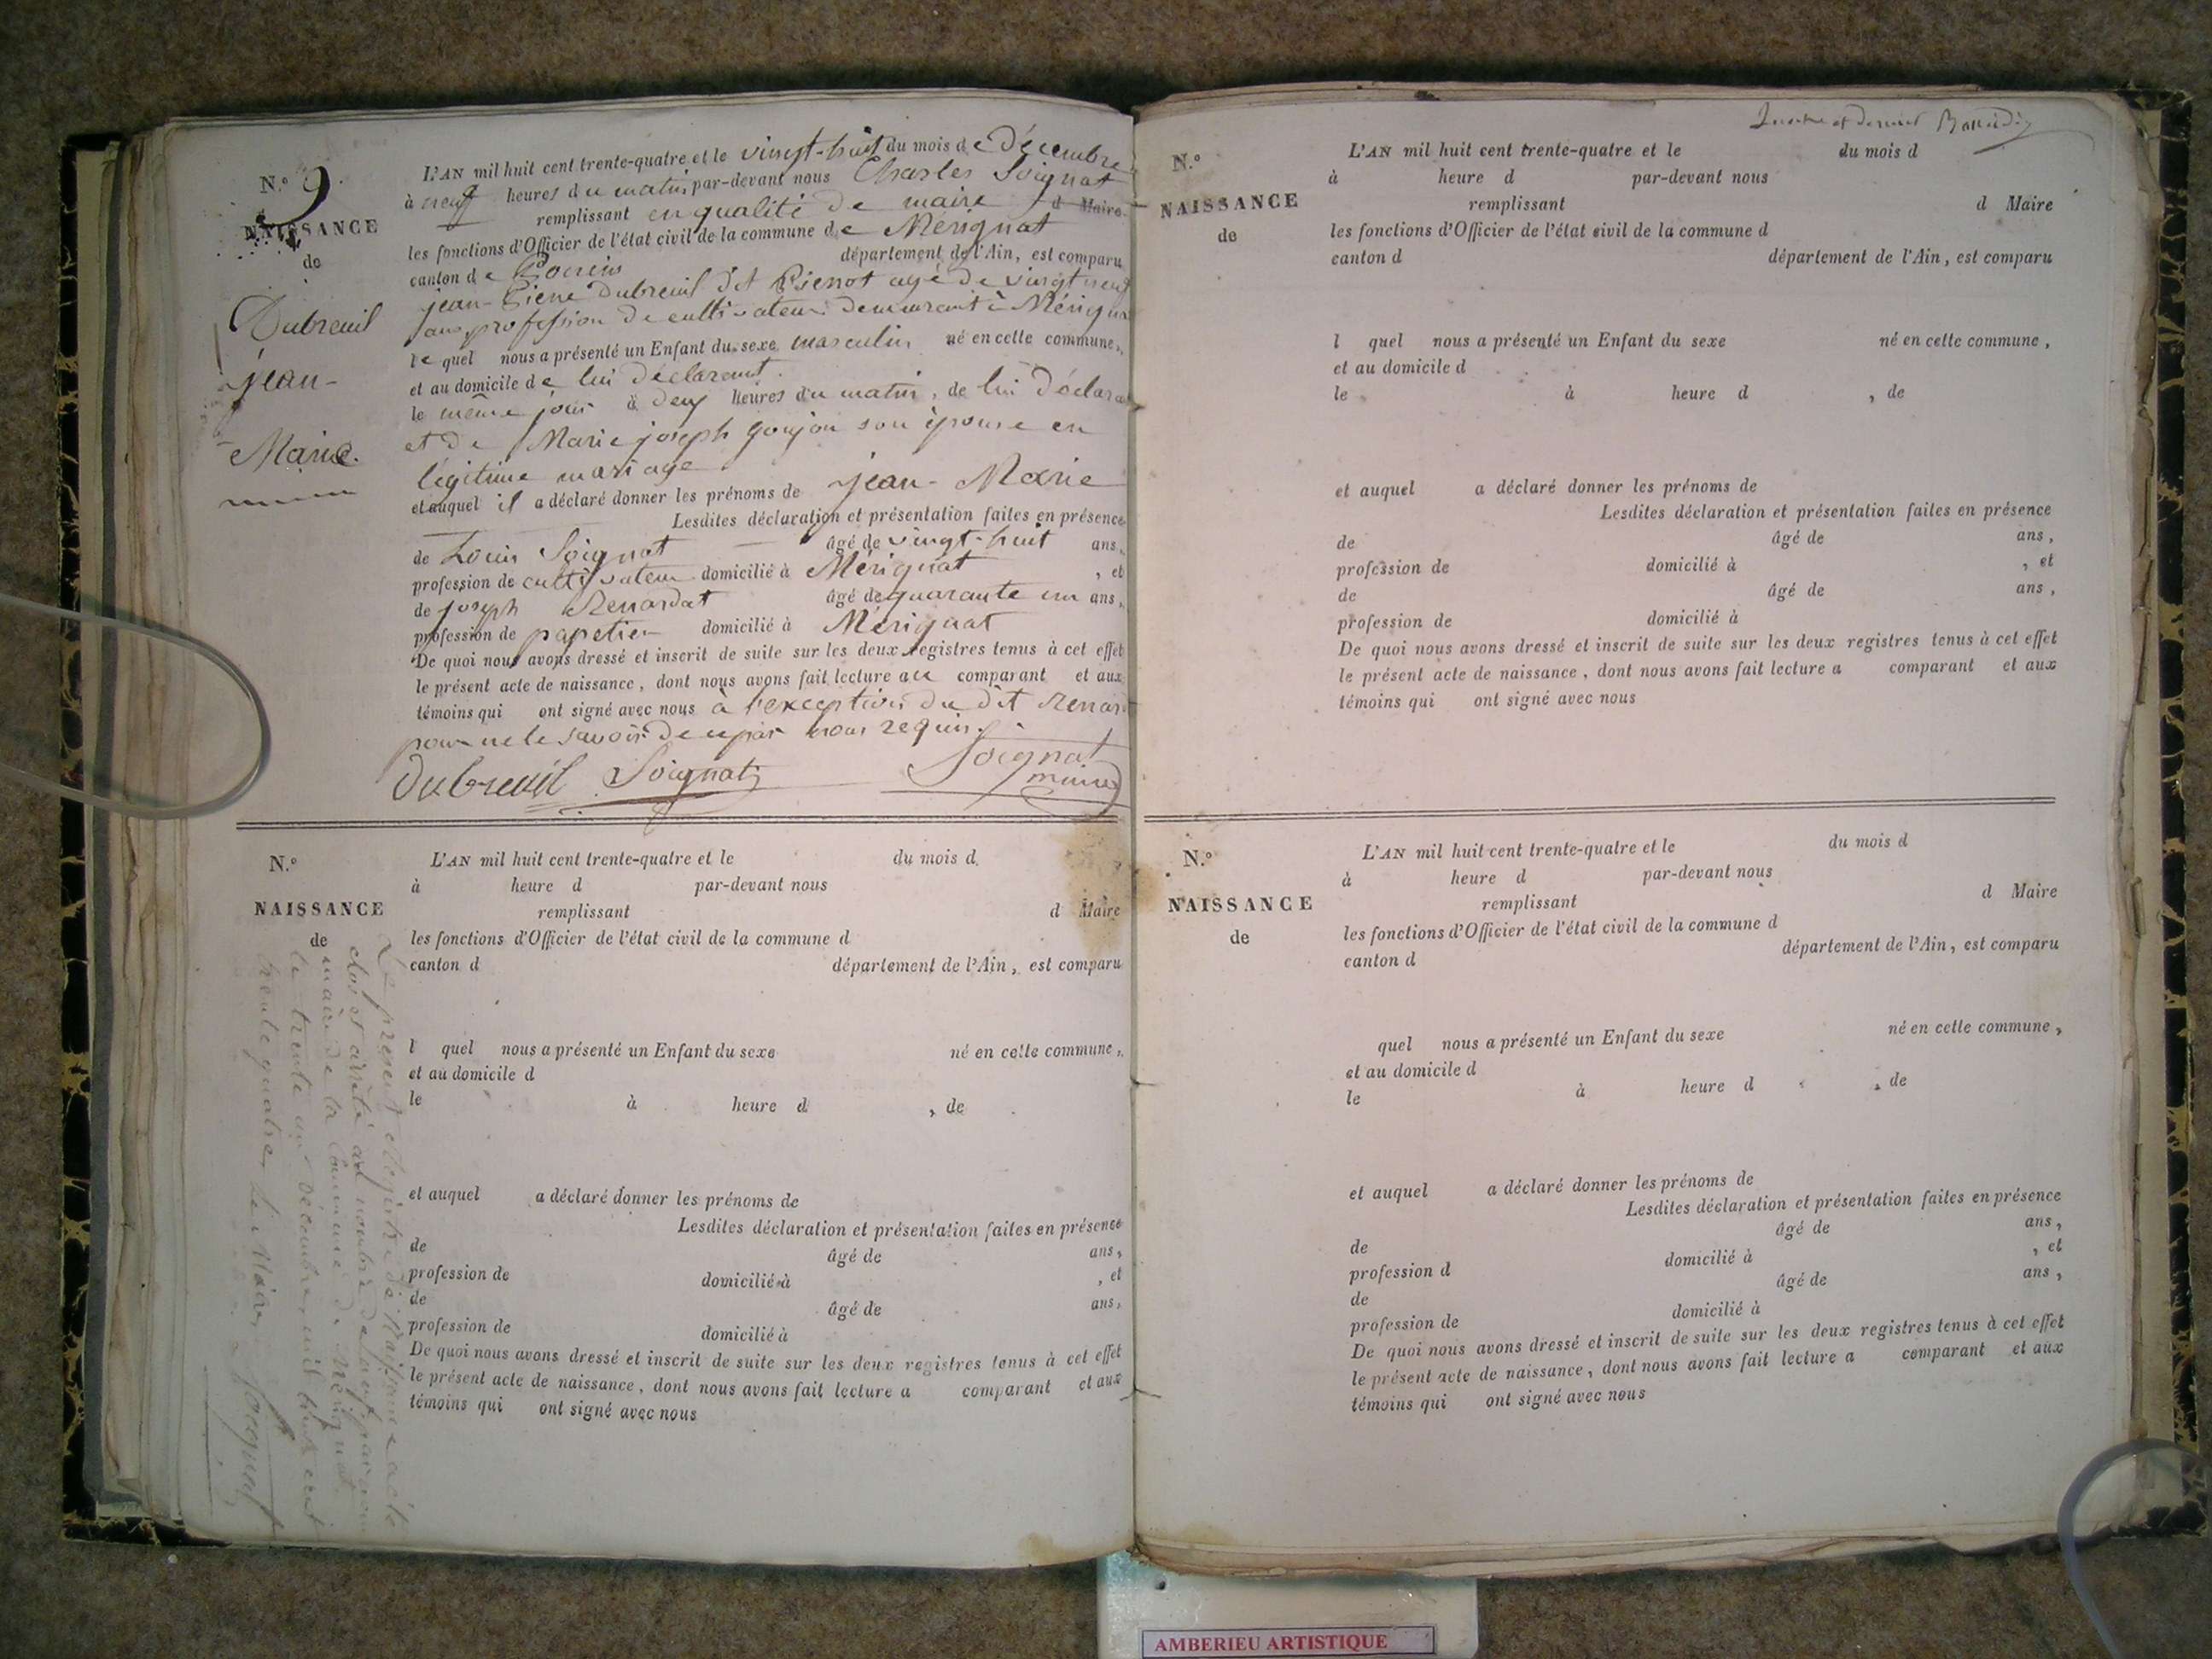 N.º 9.
NAISSANCE
de
Dubreuil
jean-
Marie.
L'AN mil huit cent trente-quatre et le vingt-huit du mois de Décembre
à neuf heures du matin par-devant nous Charles Soignat
remplissant en qualité de maire d Maire
les fonctions d'Officier de l'état civil de la commune de Mérignat
canton de Poncin département de l'Ain, est comparu
jean-Pierre Dubreuil dit Pierrot agé de vingt neuf
ans, profession de cultivateur demeurant à Mérignat
lequel nous a présenté un Enfant du sexe masculin né en cette commune,
et au domicile de lui déclarant.
le même jour à deux heures du matin, de lui déclarant
et de Marie joseph goujon son épouse en
légitime mariage
et auquel il a déclaré donner les prénoms de jean-Marie
Lesdites déclaration et présentation faites en présence
de Louis Soignat âgé de vingt-huit ans,
profession de cultivateur domicilié à Mérignat, et
de joseph Renardat âgé de quarante un ans,
profession de papetier domicilié à Mérignat
De quoi nous avons dressé et inscrit de suite sur les deux registres tenus à cet effet
le présent acte de naissance, dont nous avons fait lecture au comparant et aux
témoins qui ont signé avec nous à l'exception du dit Renar
pour ne le savoir de ce par nous requis.
dubreuil Soignat Soignat
maire
N.º
NAISSANCE
de
L'AN mil huit cent trente-quatre et le du mois d
à heure d par-devant nous
remplissant d Maire
les fonctions d'Officier de l'état civil de la commune d
canton d département de l'Ain, est comparu
l quel nous a présenté un Enfant du sexe né en cette commune,
et au domicile d
le à heure d , de
et auquel a déclaré donner les prénoms de
Lesdites déclaration et présentation faites en présence
de âgé de ans,
profession de domicilié à , et
de âgé de ans,
profession de domicilié à
De quoi nous avons dressé et inscrit de suite sur les deux registres tenus à cet effet
le présent acte de naissance, dont nous avons fait lecture a comparant et aux
témoins qui ont signé avec nous
Le présent Registre de Naissance a été
clos et arrêté au nombre de neuf par nous
maire de la Commune de Mérignat
le trente un décembre mil huit cent
trente quatre, Le Maire,
Soignat
dernier
N.º
NAISSANCE
de
L'AN mil huit cent trente-quatre et le du mois d
à heure d par-devant nous
remplissant d Maire
les fonctions d'Officier de l'état civil de la commune d
canton d département de l'Ain, est comparu
l quel nous a présenté un Enfant du sexe né en cette commune,
et au domicile d
le à heure d , de
et auquel a déclaré donner les prénoms de
Lesdites déclaration et présentation faites en présence
de âgé de ans,
profession de domicilié à , et
de âgé de ans,
profession de domicilié à
De quoi nous avons dressé et inscrit de suite sur les deux registres tenus à cet effet
le présent acte de naissance, dont nous avons fait lecture a comparant et aux
témoins qui ont signé avec nous
N.º
NAISSANCE
de
L'AN mil huit cent trente-quatre et le du mois d
à heure d par-devant nous
remplissant d Maire
les fonctions d'Officier de l'état civil de la commune d
canton d département de l'Ain, est comparu
quel nous a présenté un Enfant du sexe né en cette commune,
et au domicile d
le à heure d , de
et auquel a déclaré donner les prénoms de
Lesdites déclaration et présentation faites en présence
de âgé de ans,
profession d domicilié à , et
de âgé de ans,
profession de domicilié à
De quoi nous avons dressé et inscrit de suite sur les deux registres tenus à cet effet
le présent acte de naissance, dont nous avons fait lecture a comparant et aux
témoins qui ont signé avec nous
AMBERIEU ARTISTIQUE